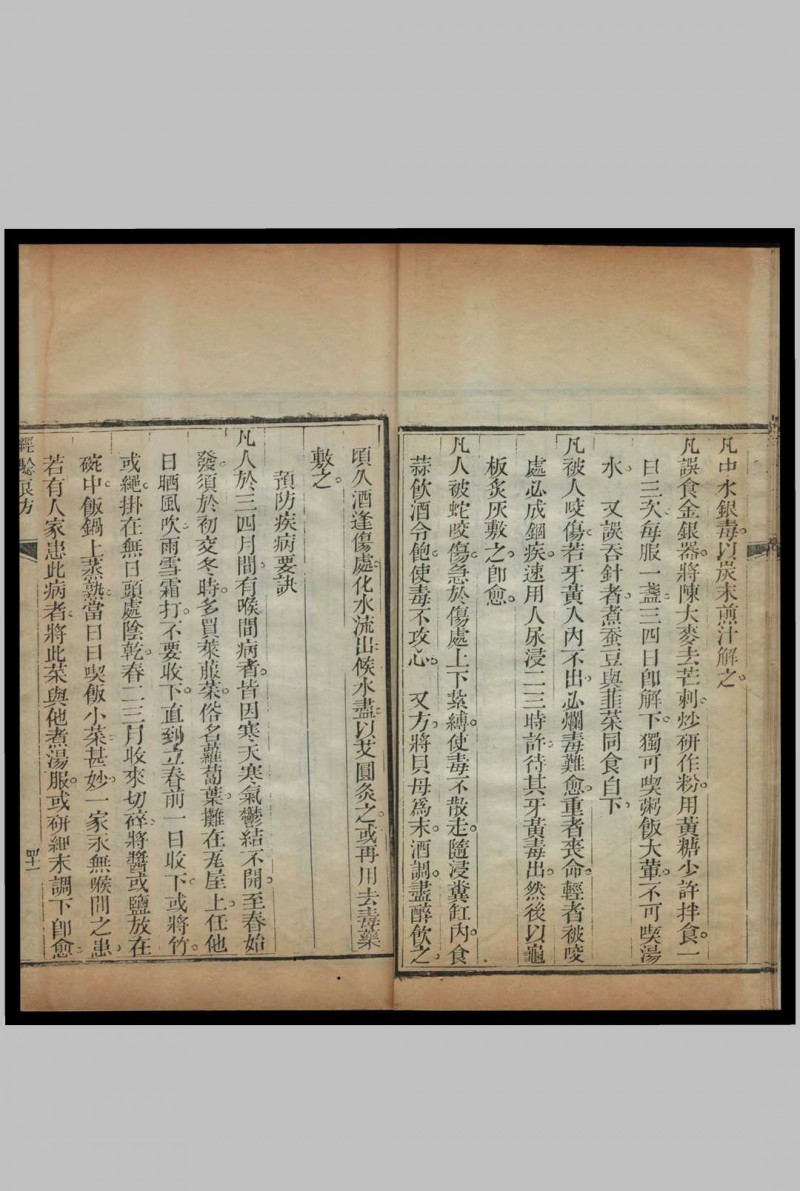 凡中水銀毒以炭末煎汁解之。
凡誤食金銀器。將陳大麥去芒刺炒研作粉。用黃糖少許拌食。一
日三次。每服一盞。三四日卽解下。獨可喫粥飯大葷。不可喫湯
水。　又誤吞針者。煮蚕豆與韭菜同食自下。
凡被人咬傷。若牙黃入內不出。必爛毒難愈。重者喪命。輕者被咬
處必成錮疾。速用人尿浸二三時許。待其牙黃毒出。然後以龜
板炙灰敷之。卽愈。
凡人被蛇咬傷。急於傷處上下紮縛。使毒不散走。隨浸糞缸內。食
蒜飲酒令飽。使毒不攻心。　又方。將貝母爲末。酒調。盡醉飲之。
頃久酒逢傷處化水流出。候水盡。以艾圓灸之。或再用去毒藥
敷之。
預防疾病要訣
凡人於三四月間。有喉間病者。皆因寒天寒氣鬱結不開。至春始
發。須於初交冬時。多買萊菔菜。俗名蘿蔔葉。攤在尨屋上。任他
日晒風吹雨雪霜打。不要收下。直到立春前一日收下。或將竹
或繩掛在無日頭處陰乾。春二三月收來切碎。將醬或鹽放在
碗中飯鍋上蒸熟。當日日喫飯小菜甚妙。一家永無喉間之患。
若有人家患此病者。將此菜與他煮湯服。或研細末調下卽愈。
經驗良方
四十一